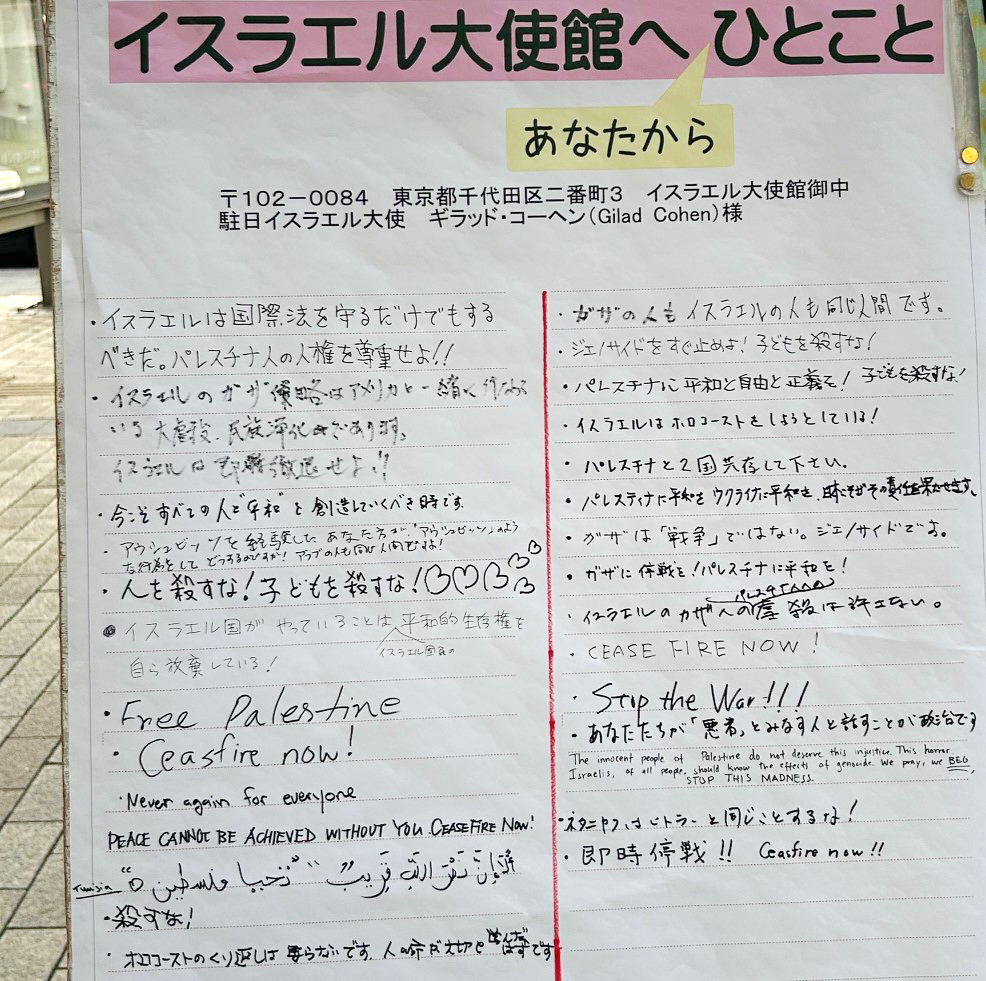 イスラエル大使館へ ひとこと
あなたから
〒102-0084 東京都千代田区二番町3 イスラエル大使館御中
駐日イスラエル大使 ギラッド・コーヘン(Gilad Cohen)様
・イスラエルは国際法を守るだけでもする
べきだ。パレスチナ人の人権を尊重せよ!!
・イスラエルのガザ侵略はアメリカと一緒に行なって
いる大虐殺、民族浄化であります。
イスラエルは即時撤退せよ!!
・今こそすべての人と"平和"を創造していくべき時です。
・アウシュビッツを経験したあなた方が、"アウシュビッツ"のよう
な行為をしてどうするのですか! アラブの人も同じ人間ですよ!
・人を殺すな!子どもを殺すな!♡♡♡♡♡
・イスラエル国がやっていることは、平和的生存権を
イスラエル国民の
自ら放棄している!
・Free Palestine
・Ceasfire now!
・Never again for everyone
PEACE CANNOT BE ACHIEVED WITHOUT YOU CEASEFIRE NOW!
Tunisia "تحيا فلسطين" "إن نصر الله قريب"
・殺すな!
・ホロコーストのくり返しは要らないです。人の命が大切と学んだはずです
・ガザの人もイスラエルの人も同じ人間です。
・ジェノサイドをすぐ止めよ! 子どもを殺すな!
・パレスチナに平和と自由と正義を! 子どもを殺すな!
・イスラエルはホロコーストをしようとしている!
・パレスチナと2国共存して下さい。
・パレスティナに平和を ウクライナに平和を、日本こそがその責任を果たせます。
・ガザは「戦争」ではない。ジェノサイドです。
・ガザに停戦を!パレスチナに平和を!
パレスチナ人への
・イスラエルのガザへの虐殺は許さない。
・CEASE FIRE NOW!
・Stop the War!!!
・あなたたちが「悪者」とみなす人と話すことが政治です
The innocent people of Palestine do not deserve this injustice. This horror.
Israelis, of all people, should know the effects of genocide. We pray, we BEG,
STOP THIS MADNESS.
・ネタニヤフはヒトラーと同じことするな!
・即時停戦!! Ceasfire now!!